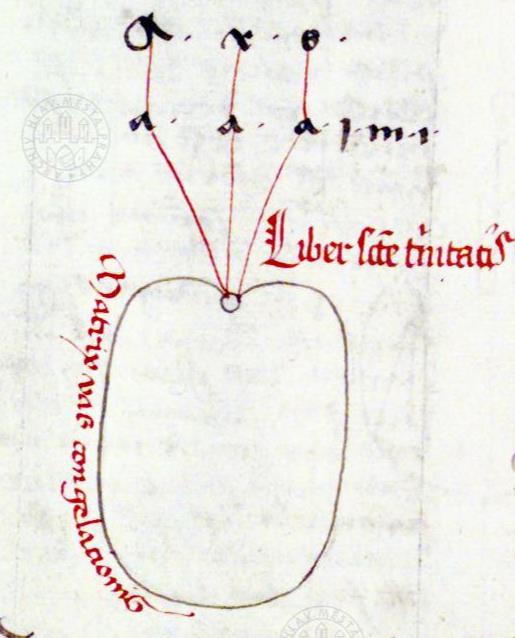 a. x. s.
a. a. a
Liber scte trinitatis
Matrix vas congelacionis